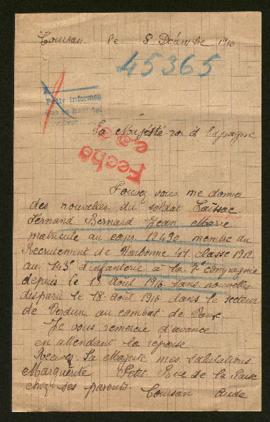 Coursan le 8 Décembre 1916
45365
Pour informes
Sa Majesté roi d'Espagne
Fecho
Pouvez vous me donner
des nouvelles du soldat
Fernand Bernard Jean Marie
matricule au corps 12492
Recrutement de Narbonne classe 1912
au 143e d'infanterie à la 7e Compagnie
depuis le 18 Août 1916 sans nouvelles
disparu le 18 Août 1916 dans le secteur
de Verdun au combat de
Je vous remercie d'avance
en attendant la réponse
Recevez Sa Majesté mes salutations
Marguerite Petit Rue de la
chez ses parents Coursan Aude